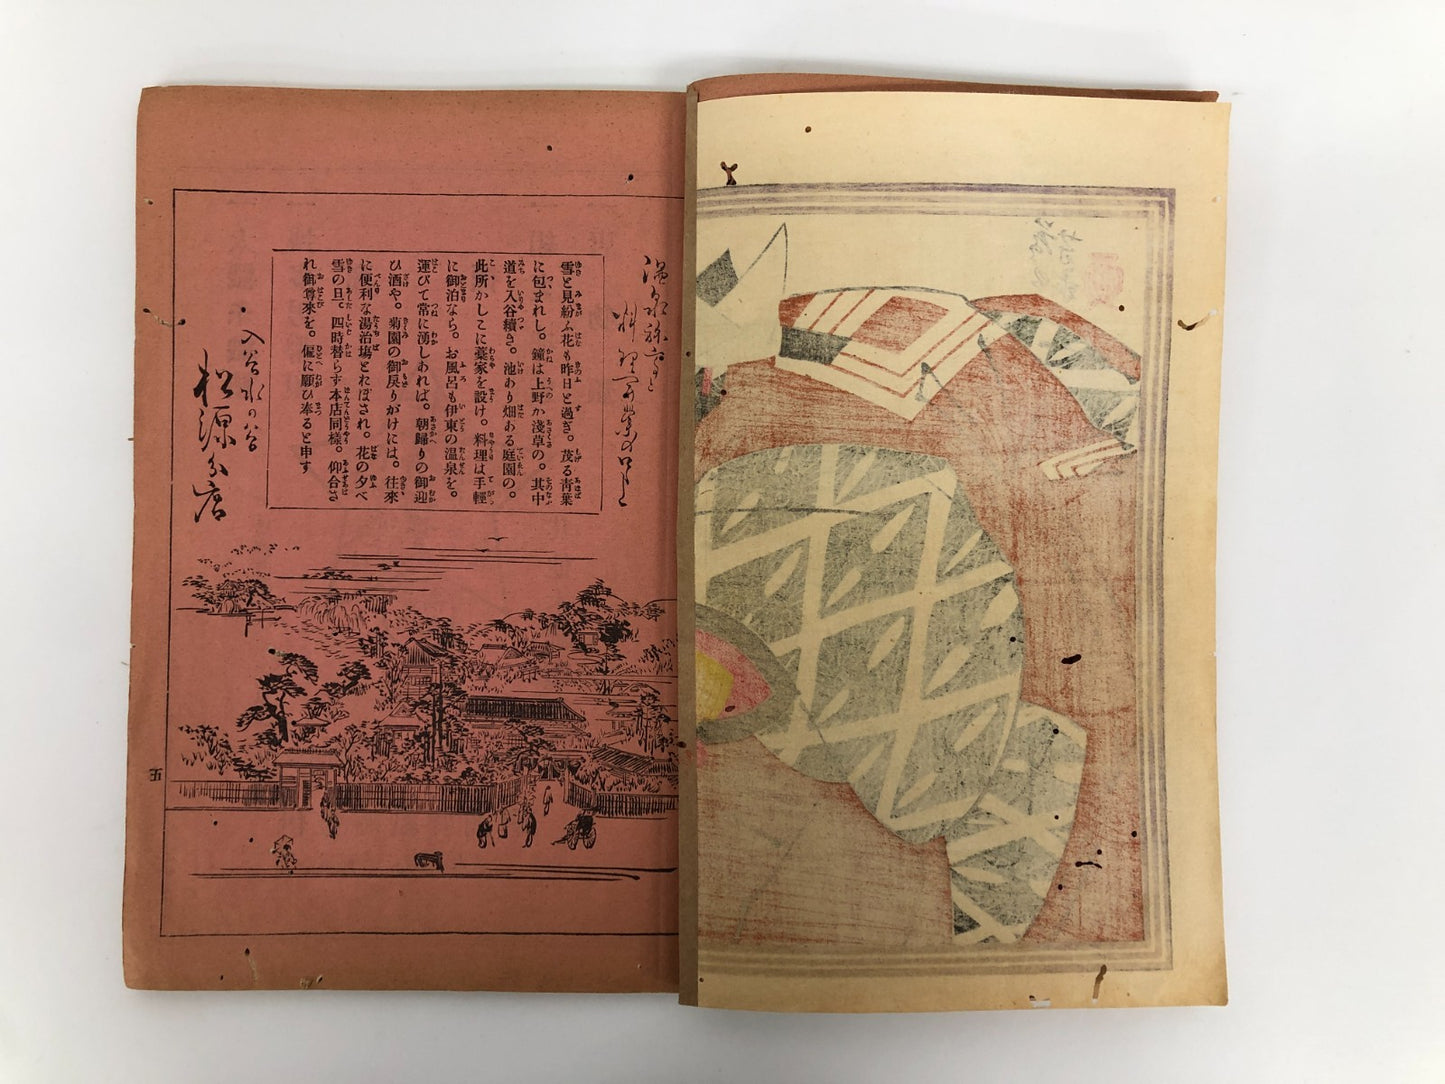 温泉並ニ
料理開業の口上
雪と見紛ふ花も昨日と過ぎ。茂る靑葉
に包まれし。鐘は上野か淺草の。其中
道を入谷續き。池あり畑ある庭園の。
此所かしこに藁家を設け。料理は手輕
に御泊なら。お風呂も伊東の温泉を。
運びて常に湧しあれば。朝歸りの御迎
ひ酒や。菊園の御戾りがけには。往來
に便利な湯治塲とれぼされ。花の夕べ
雪の旦。四時替らす本店同樣。仰合さ
れ御尊來を。偏に願ひ奉ると申す
入谷水の谷
松源分店
五